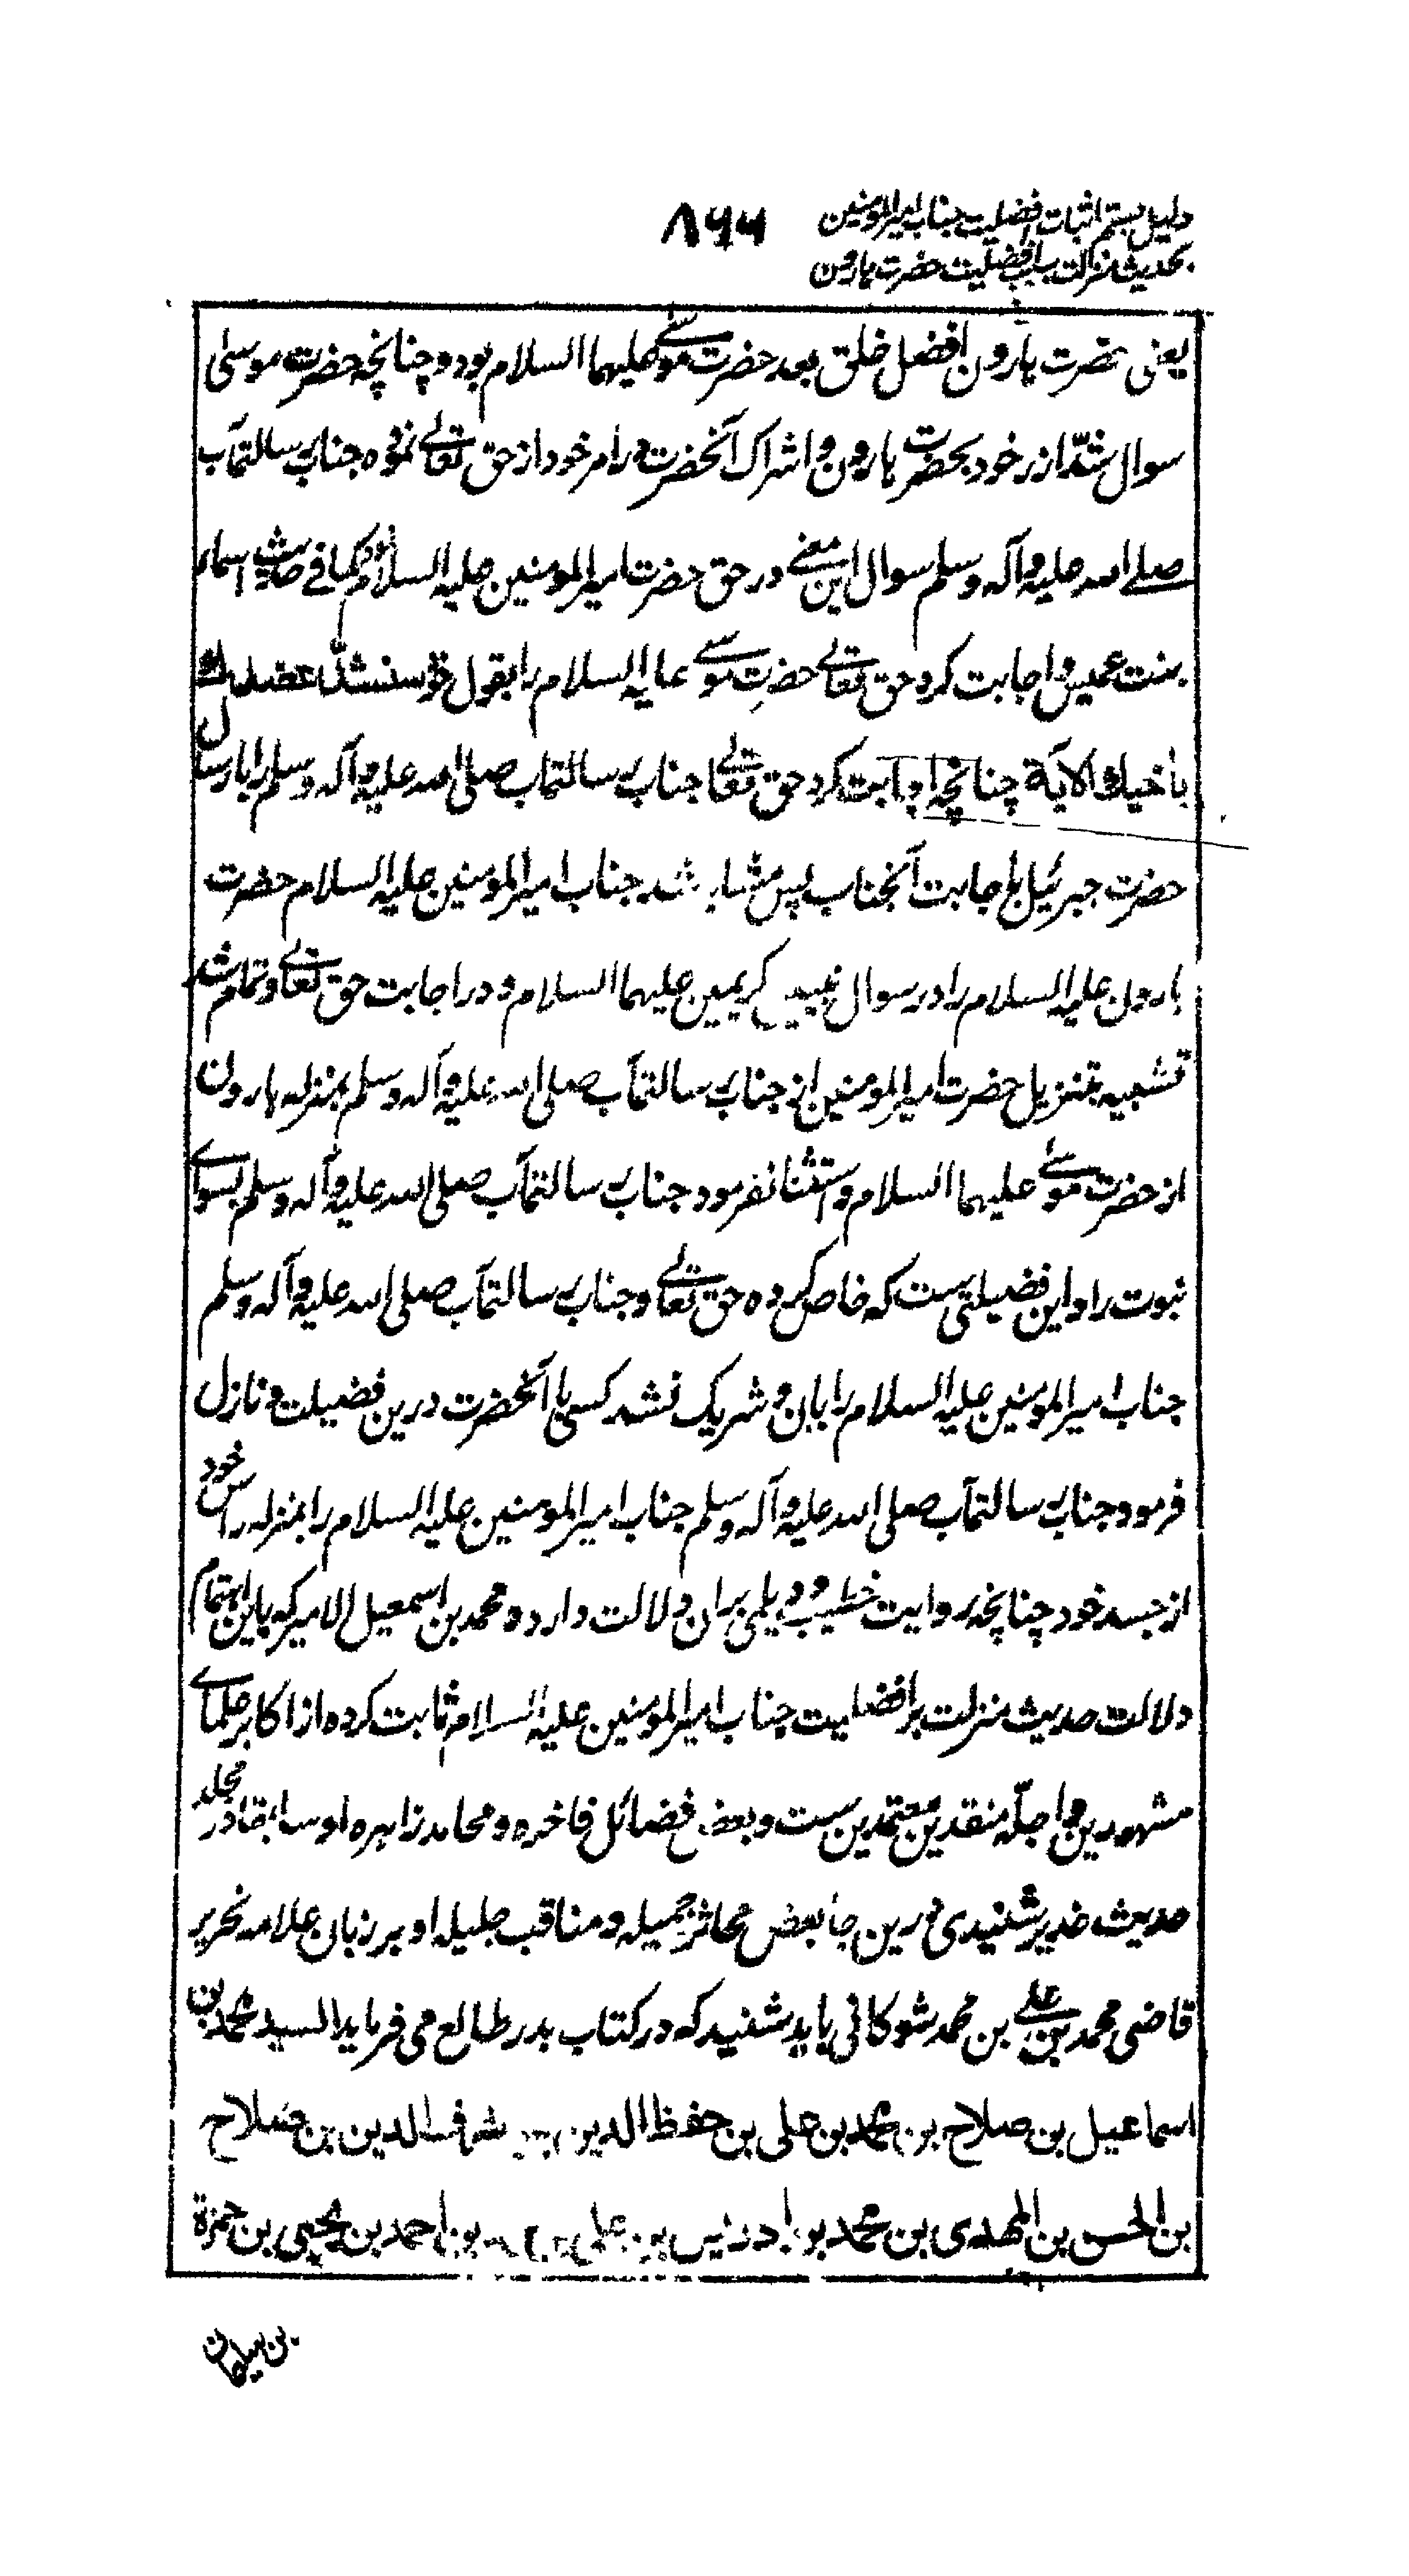 دلیل بستم اثبات افضلیت جناب امیرالمومنین
۸۶۶
بحدیث منزلت بسبب افضلیت حضرت هارون
یعنی حضرت هارون افضل خلق بعد حضرت موسی علیهما السلام بود و چنانچه حضرت موسی
سوال شدّ ازر خود بحضرت هارون و اشراک آنحضرت در امر خود از حق تعالی نموده جناب رسالتمآب
صلی الله علیه و آله و سلم سوال این معنی در حق حضرت امیرالمومنین علیه السلام نموده کما فی حدیث اسماء
بنت عمیس و اجابت کرد حق تعالی حضرت موسی علیه السلام را بقول خود سنشدّ عضدک
باخیک الآیة چنانچه اجابت کرد حق تعالی جناب رسالتمآب صلی الله علیه و آله و سلم را بارسال
حضرت جبرئیل باجابت آنجناب پس مشابه شد جناب امیرالمومنین علیه السلام حضرت
هارون علیه السلام را در سوال نبیین کریمین علیهما السلام و در اجابت حق تعالی و تمام شد
تشبیه بتنزیل حضرت امیرالمومنین از جناب رسالتمآب صلی الله علیه و آله و سلم بمنزله هارون
از حضرت موسی علیهما السلام و استثنا نفرمود جناب رسالتمآب صلی الله علیه و آله و سلم بسوای
نبوت را و این فضیلتی ست که خاص کرده حق تعالی و جناب رسالتمآب صلی الله علیه و آله و سلم
جناب امیرالمومنین علیه السلام را بان و شریک نشد کسی با آنحضرت درین فضیلت و نازل
فرمود جناب رسالتمآب صلی الله علیه و آله و سلم جناب امیرالمومنین علیه السلام را بمنزله راس خود
از جسد خود چنانچه روایت خطیب و دیلمی بران دلالت دارد و محمد بن اسمعیل الامیر که باین اهتمام
دلالت حدیث منزلت بر افضلیت جناب امیرالمومنین علیه السلام ثابت کرده از اکابر علمای
مشهورین و اجلّه منقدین معتمدین ست و بعض فضائل فاخره و محامد زاهره او سابقا در مجلد
حدیث غدیر شنیدی درین جا بعض محاثر جمیله و مناقب جلیله او بر زبان علامه نحریر
قاضی محمد بن علی بن محمد شوکانی باید شنید که در کتاب بدر طالع می فرماید السید محمد بن
اسماعیل بن صلاح بن محمد بن علی بن حفظ الدین بن شرف الدین بن صلاح
بن الحسن بن المهدی بن محمد بن ادریس بن علی بن احمد بن یحیی بن حمزة
بن سلیمان